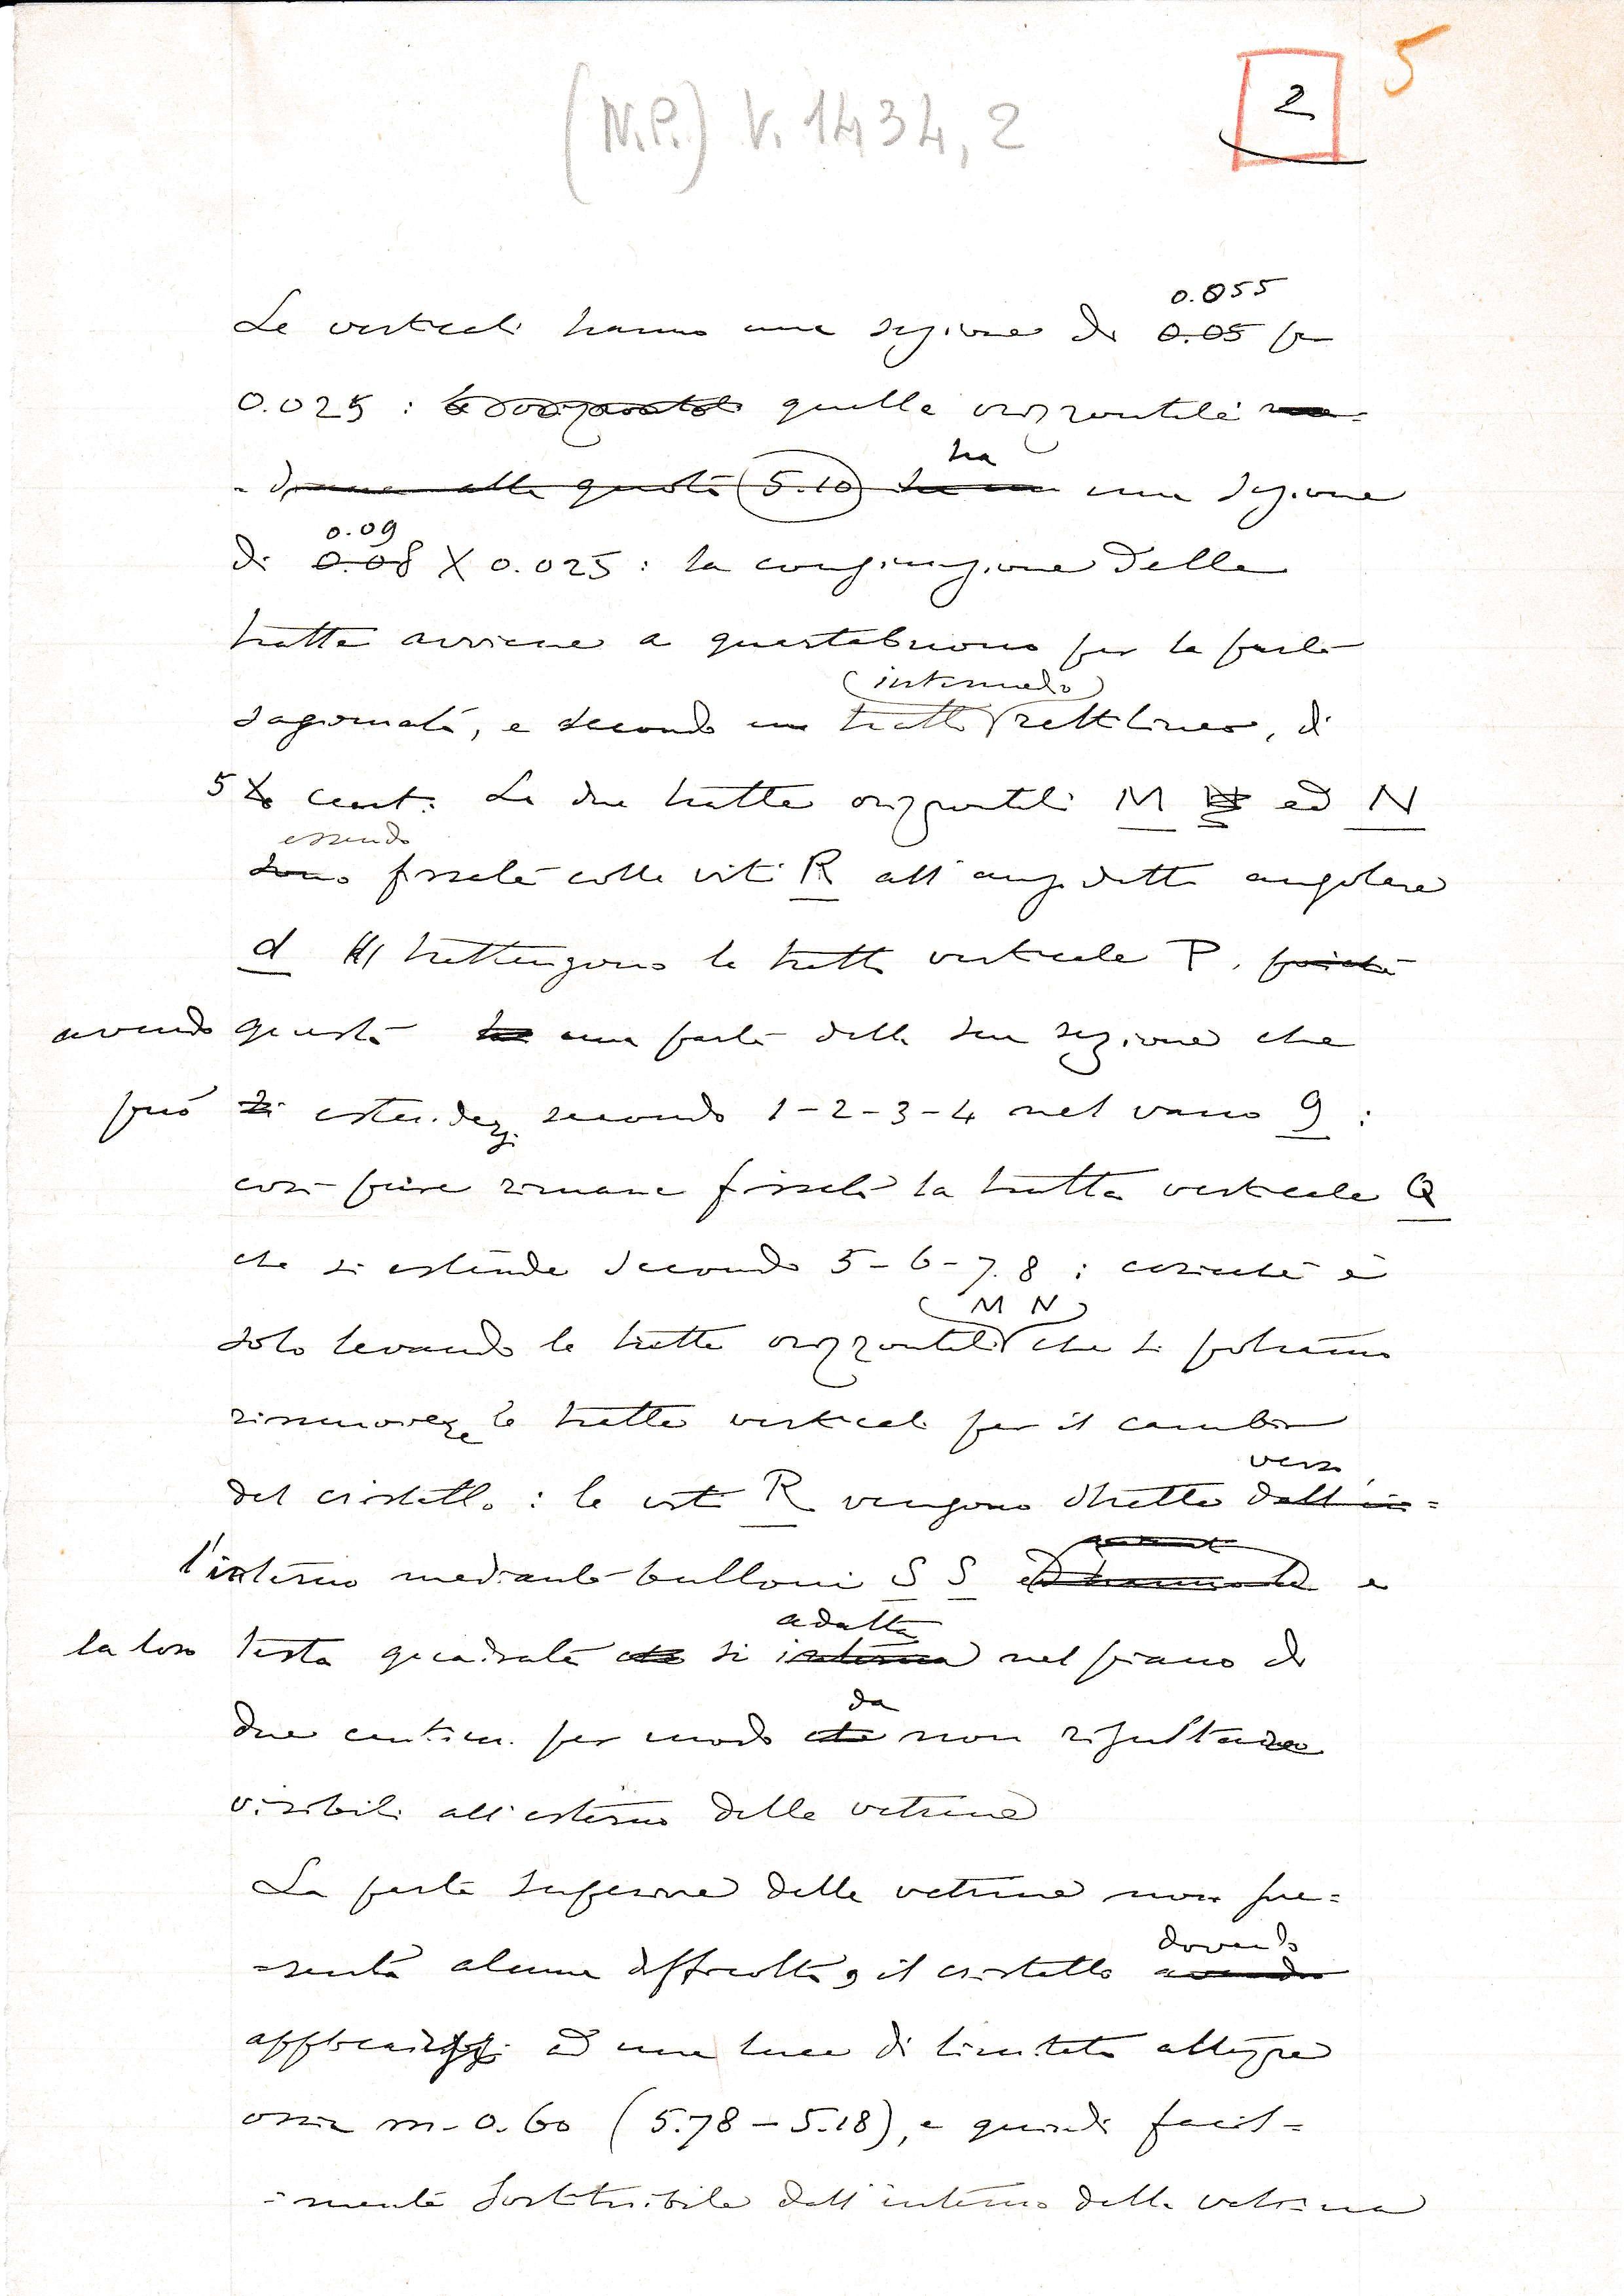 (N.P.) V. 1434, 2
2
5
0.055
Le verticali hanno una sezione di 0.05 per
0.025 : quelle orizzontali
alle quote 5.10 ha una sezione
0.09
di 0.08 X 0.025 : la congiunzione delle
tratte avviene a quartabuono per la parte
(intermedo)
sagomata, e secondo un tratto rettilineo, di
5 cent: Le due tratte orizzontali M N ed N
essendo
sono fissate colle viti R all'anzidetto angolare
d trattengono la tratta verticale P. poichè
avendo questa ha una parte della sua sezione che
può si estendersi secondo 1-2-3-4 nel vano 9 :
così pure rimane fissata la tratta verticale Q
che si estende secondo 5-6-7.8 : cosichè è
(M N)
solo levando le tratte orizzontali che si potranno
rimuovere le tratte verticali per il cambio
del cristallo : le viti R vengono strette dall'in=
verso
l'interno mediante bulloni S S e
adatta
la loro testa quadrata che si interna nel piano di
da
due centim. per modo che non risultare
visibili all'esterno delle vetrine
La parte superiore delle vetrine non pre=
dovendo
=senta alcuna difficoltà, il cristallo avendo
applicarsi ad una luce di limitata altezza
ossia m. 0.60 (5.78 - 5.18), e quindi facil=
=mente sostituibile dall'interno della vetrina